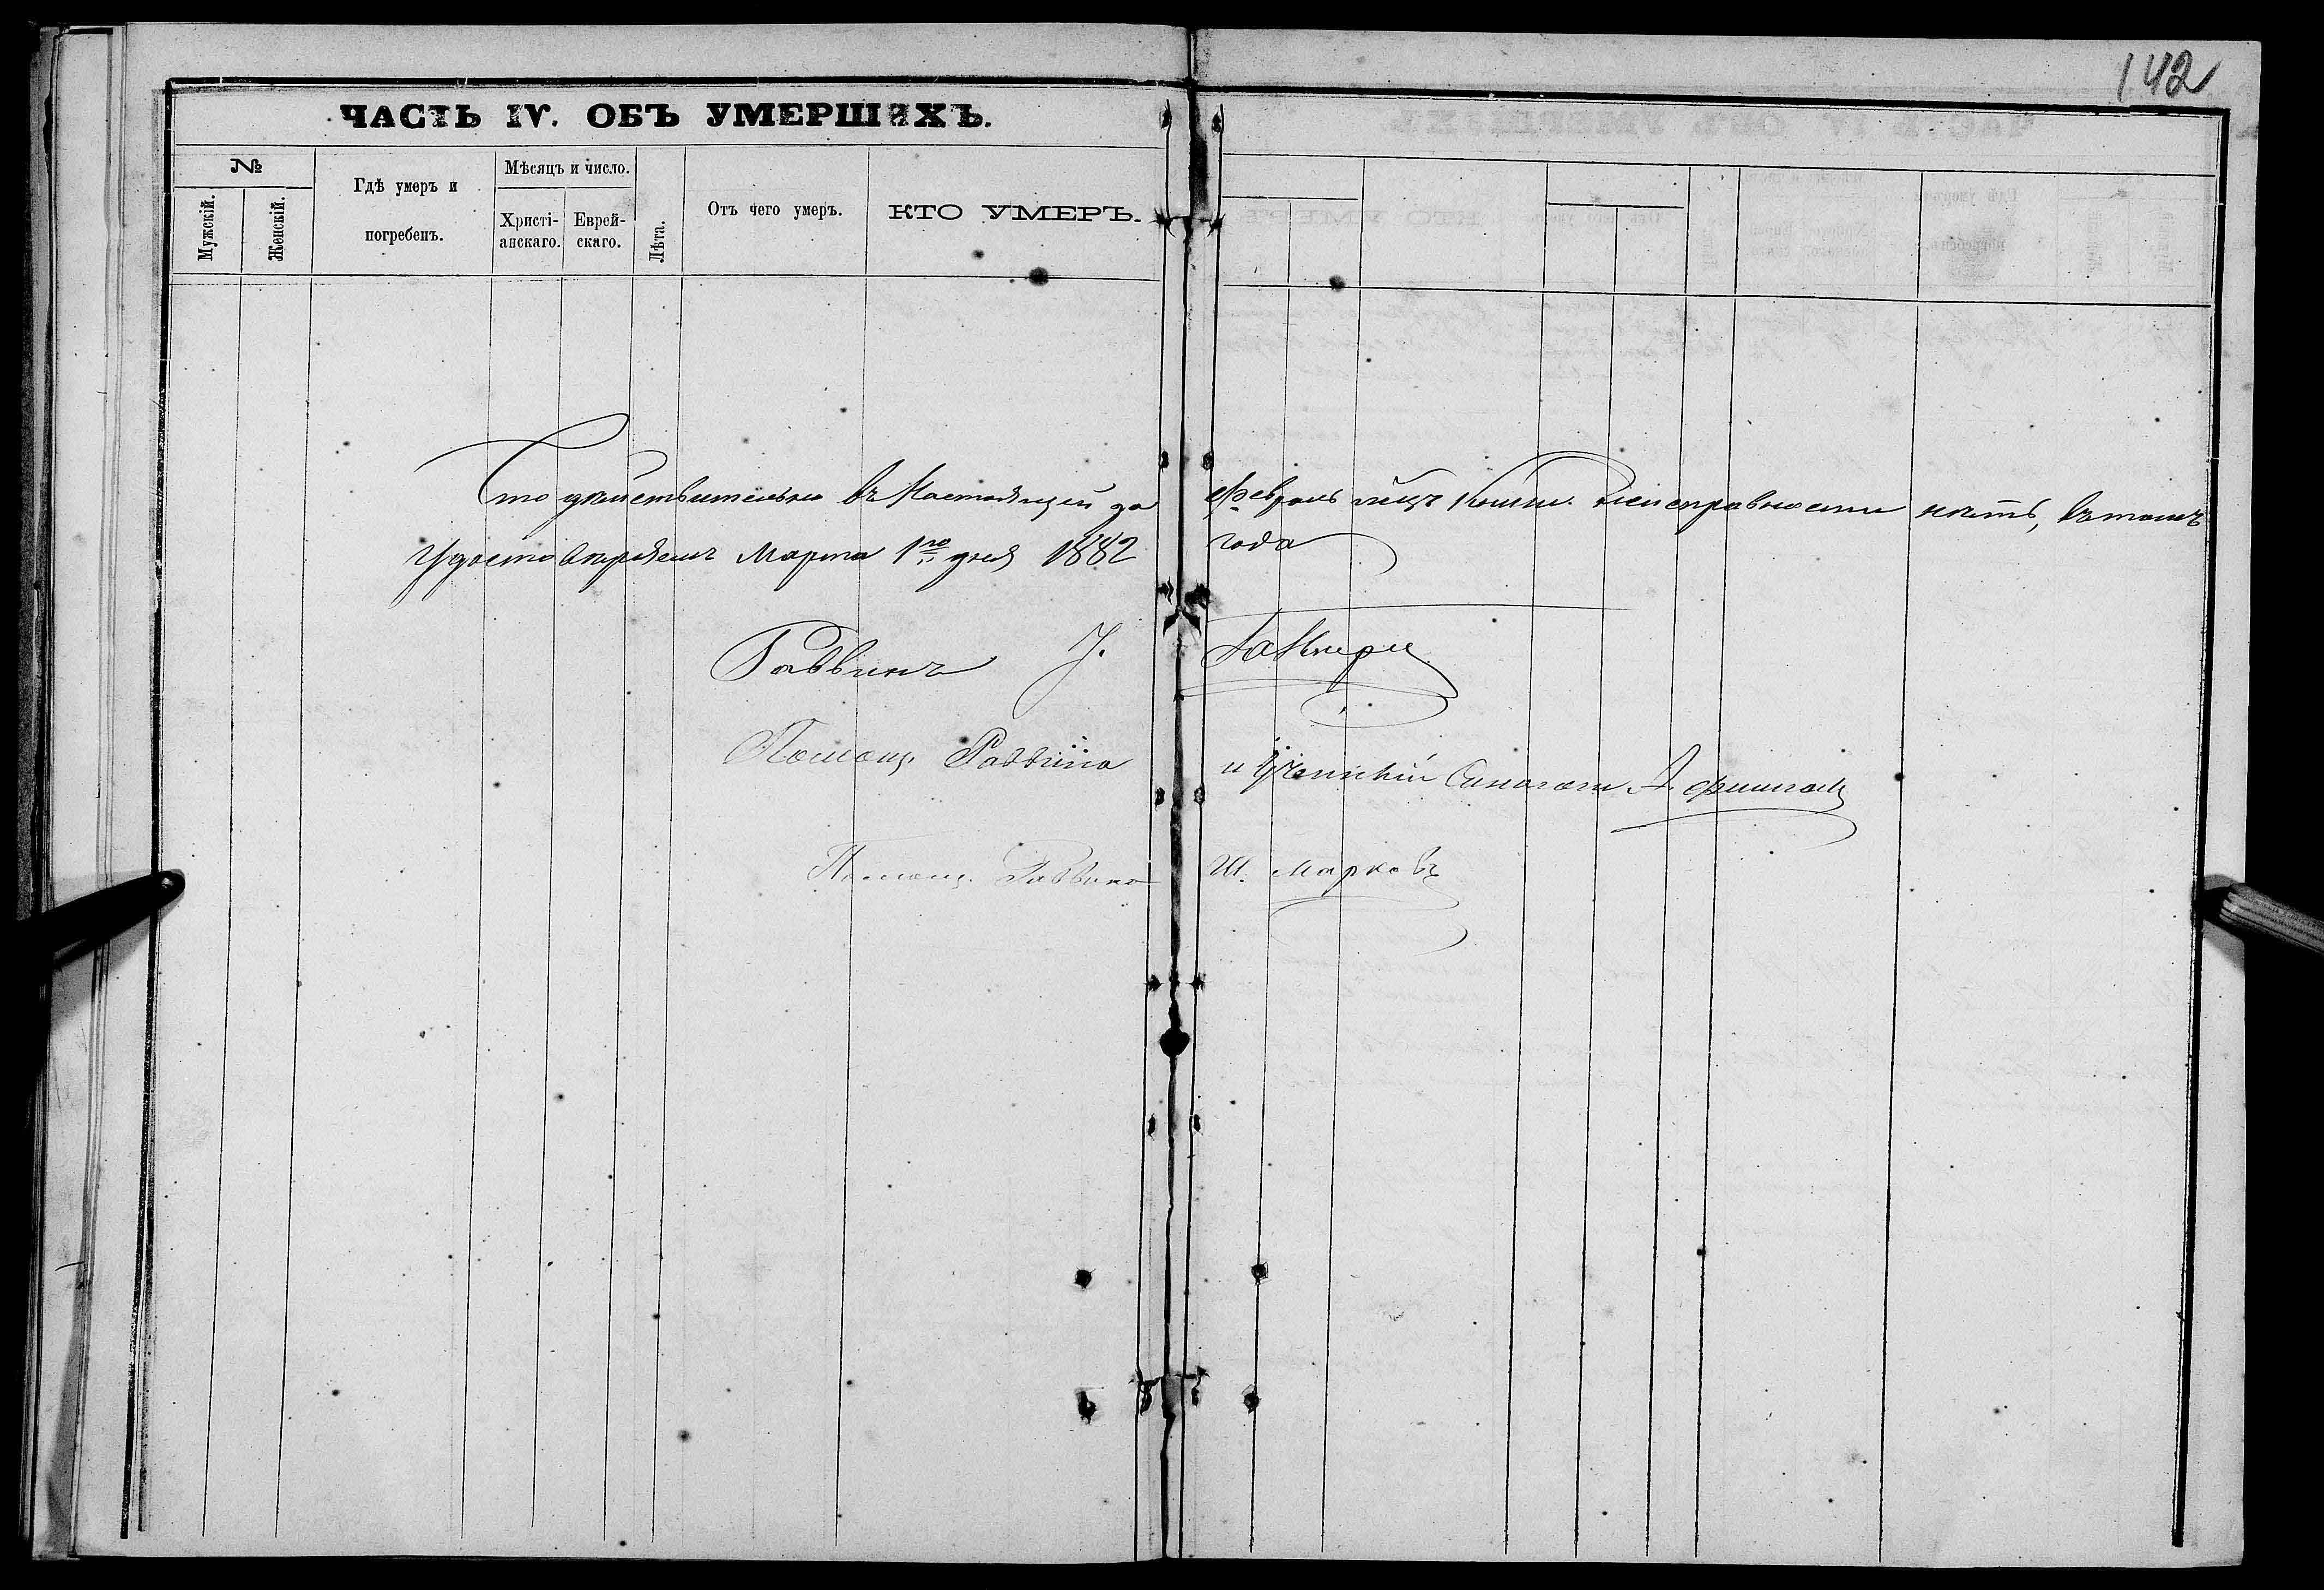 142
ЧАСТЬ IV. ОБЪ УМЕРШИХЪ.
№
Мужскій.
Женскій.
Гдѣ умеръ и
погребенъ.
Мѣсяцъ и число.
Христі-
анскаго.
Еврей-
скаго.
Лѣта.
Отъ чего умеръ.
КТО УМЕРЪ.
Что дѣйствительно въ Настоящей за Февраль неисправности нѣтъ, въ томъ
Удостовѣряемъ Марта 1го дня 1882 года
Раввинъ
Помощ. Раввина и Синагоги
Помощ. Раввина Ш. Марковъ